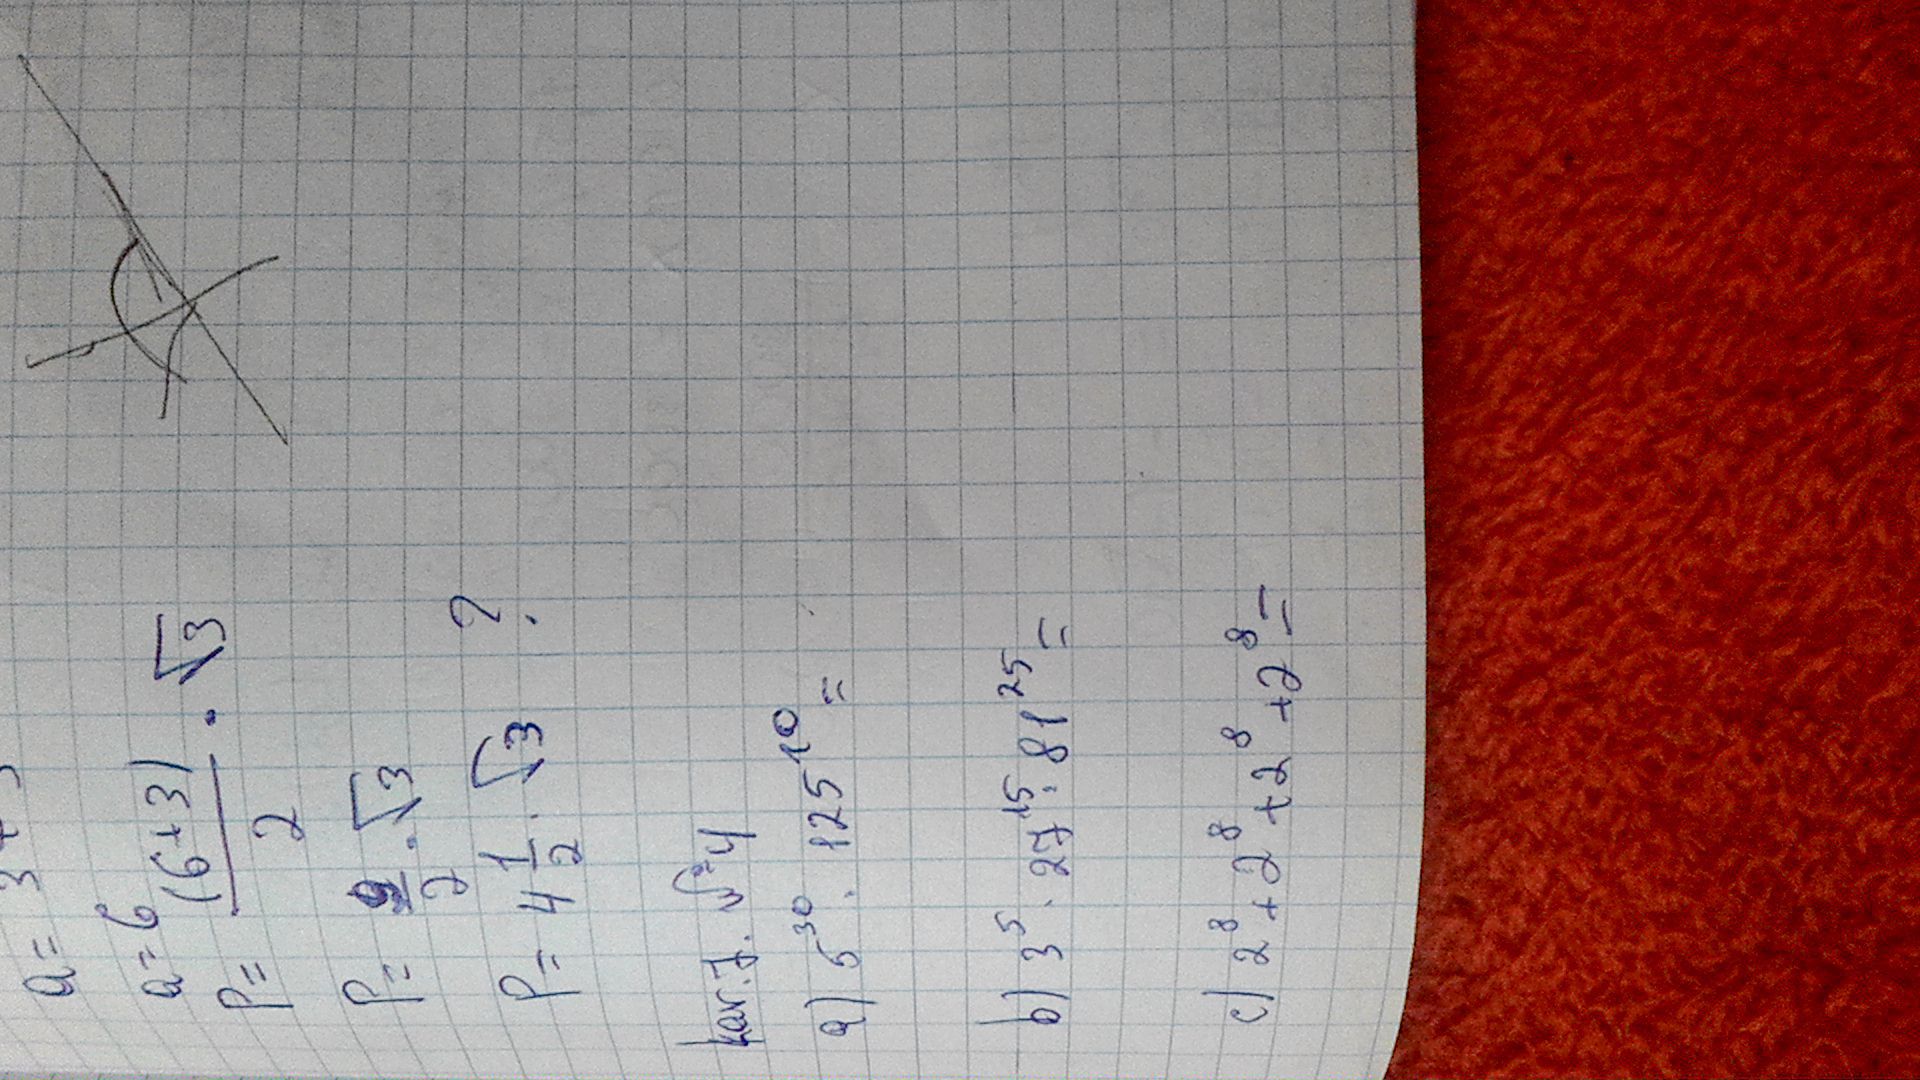 a=6
P= (6+3)/2 · √3
P= 9/2 · √3
P= 4 1/2 · √3 ?
a) 5³⁰ · 125¹⁰ =
b) 3⁵ · 27¹⁵ · 81²⁵ =
c) 2⁸ + 2⁸ + 2⁸ + 2⁸ =